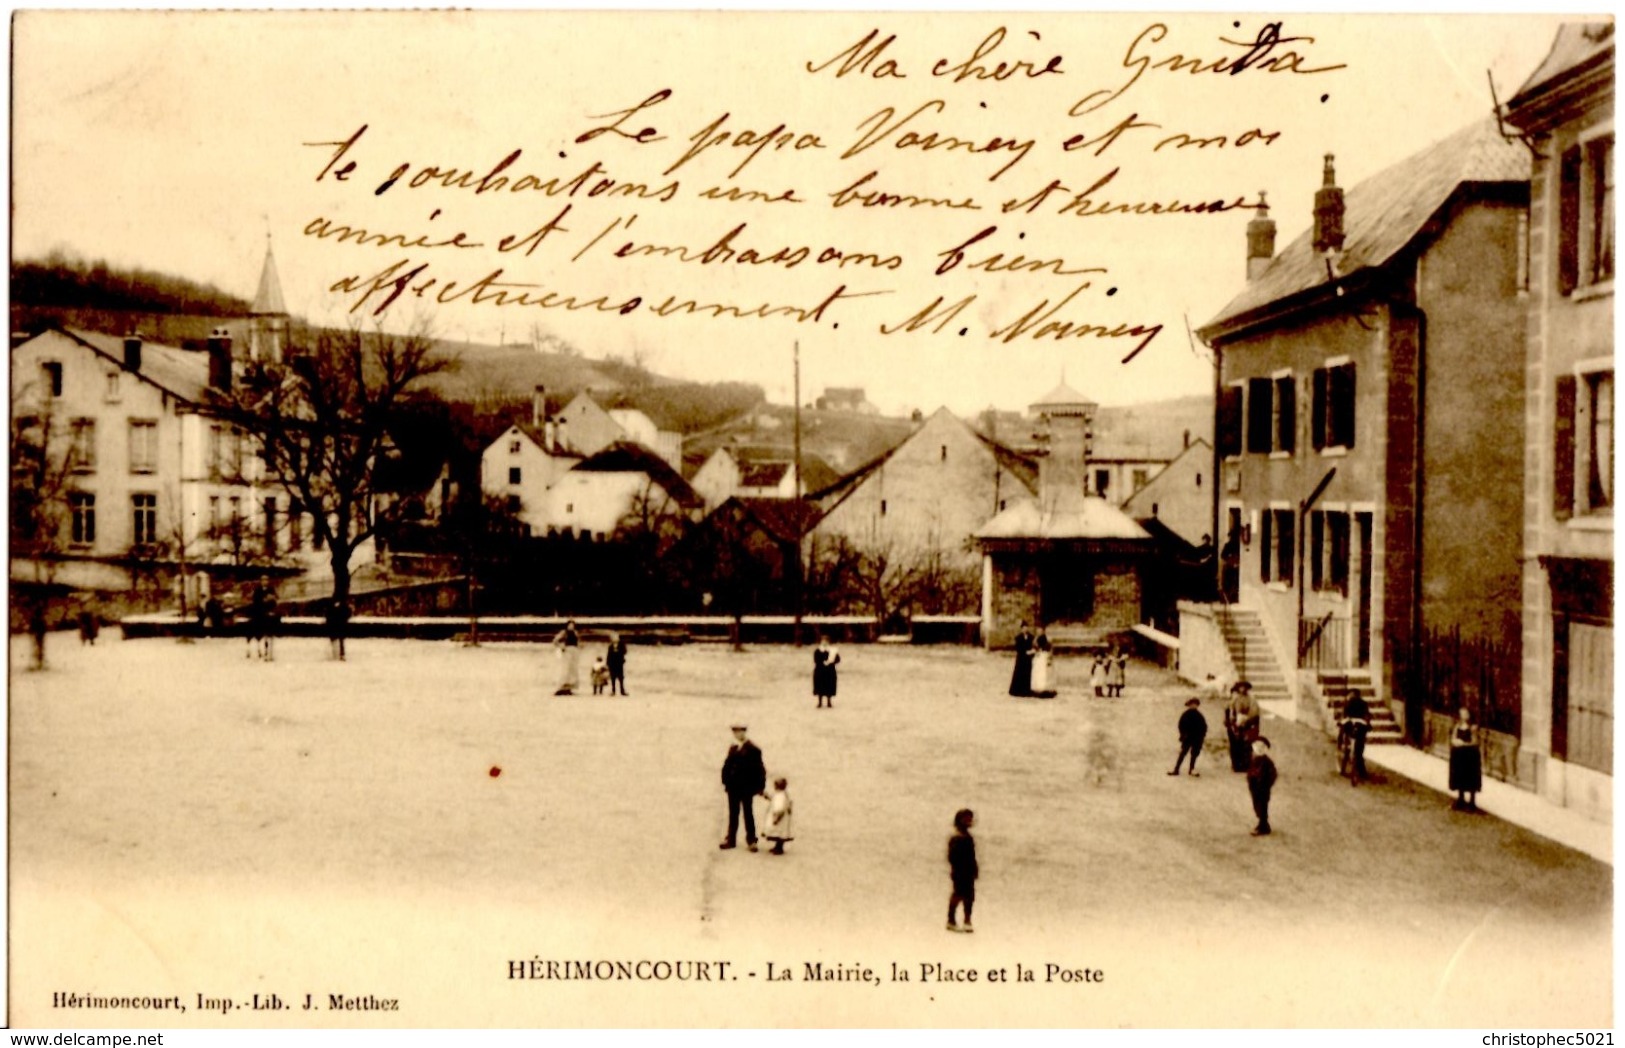 Ma chère Guita
Le papa Voiney et moi
te souhaitons une bonne et heureuse
année et t'embrassons bien
affectueusement. M. Voiney
HÉRIMONCOURT. - La Mairie, la Place et la Poste
Hérimoncourt, Imp.-Lib. J. Metthez
www.delcampe.net
christophec5021